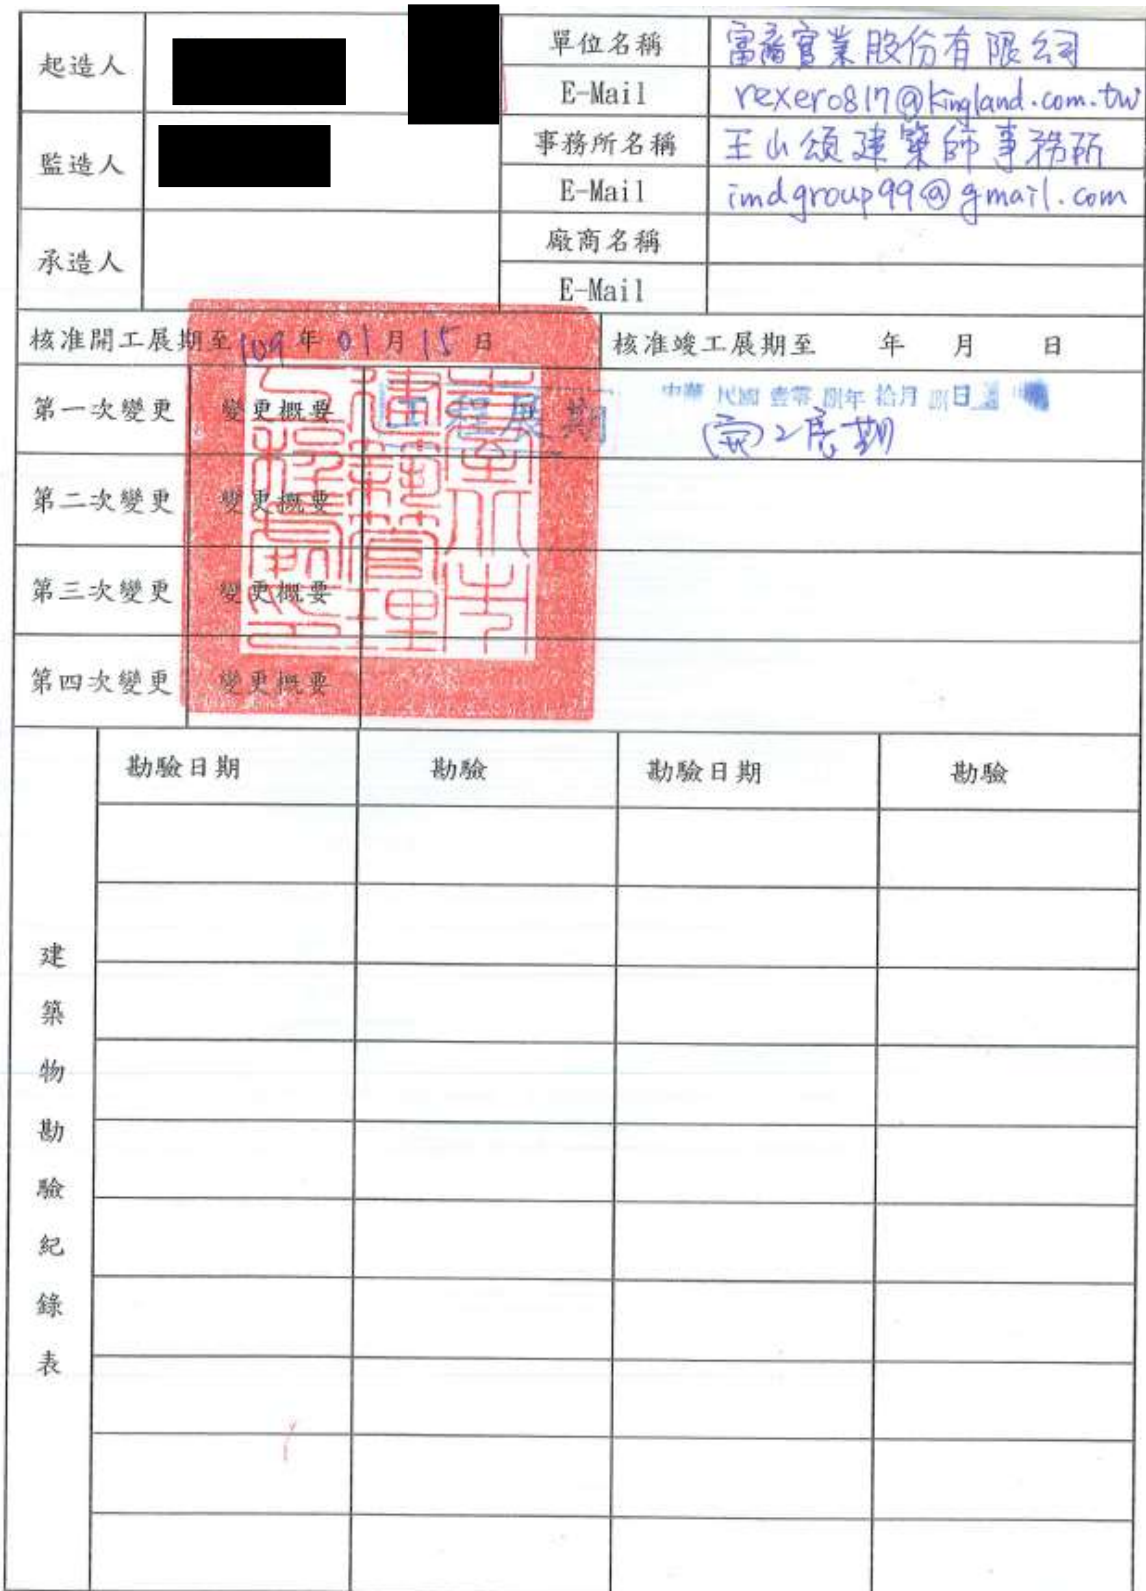 起造人
單位名稱 富裔實業股份有限公司
E-Mail rexero817@kingland.com.tw
監造人
事務所名稱 王山頌建築師事務所
E-Mail imdgroup99@gmail.com
承造人
廠商名稱
E-Mail
核准開工展期至 109 年 01 月 15 日 核准竣工展期至 年 月 日
第一次變更 變更概要 工程展期 中華民國壹零捌年拾月捌日
工展期
第二次變更 變更概要
第三次變更 變更概要
第四次變更 變更概要
臺北市
建築管理
工程處印
勘驗日期 勘驗 勘驗日期 勘驗
建築物勘驗紀錄表